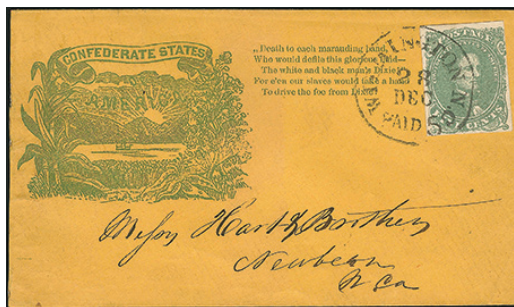 CONFEDERATE STATES
AMERICA
„Death to each marauding band,
Who would defile this glorious land—
The white and black man's Dixie!
For e'en our slaves would take a hand
To drive the foe from Dixie!
WILMINGTON N.C.
28
DEC
PAID
POSTAGE
CENTS
Messrs Hart & Brothers
Newbern
N Ca